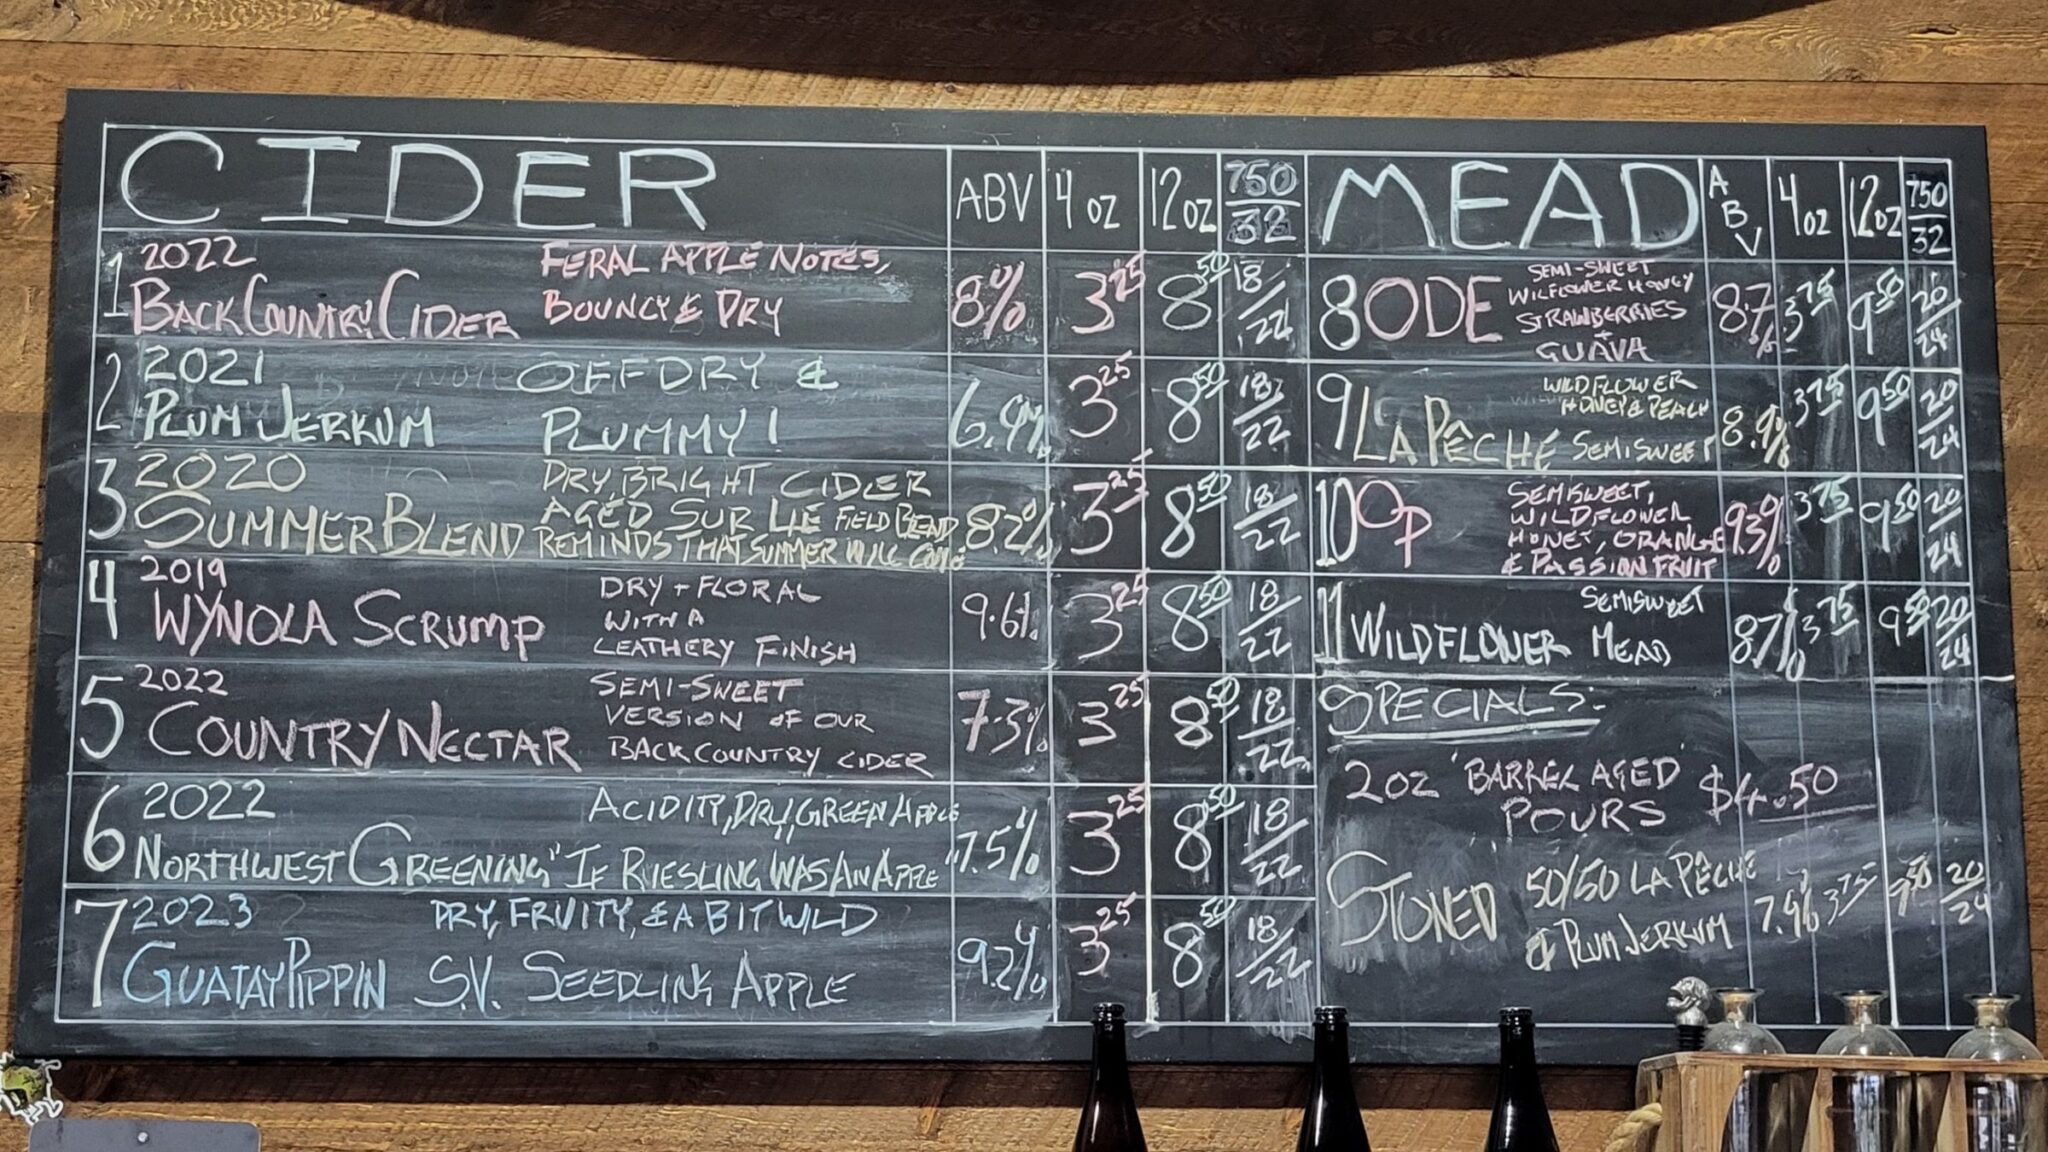 CIDER ABV 4oz 12oz 750/32
1 2022 BACK COUNTRY CIDER FERAL APPLE NOTES,
BOUNCY & DRY 8% 3.25 8.50 18/22
2 2021 PLUM JERKUM OFFDRY &
PLUMMY! 6.9% 3.25 8.50 18/22
3 2020 SUMMER BLEND DRY, BRIGHT CIDER
AGED SUR LIE FIELD BLEND
REMINDS THAT SUMMER WILL COME 8.2% 3.25 8.50 18/22
4 2019 WYNOLA SCRUMP DRY + FLORAL
WITH A
LEATHERY FINISH 9.6% 3.25 8.50 18/22
5 2022 COUNTRY NECTAR SEMI-SWEET
VERSION OF OUR
BACK COUNTRY CIDER 7.3% 3.25 8.50 18/22
6 2022 ACIDITY, DRY, GREEN APPLE
NORTHWEST GREENING "IF RIESLING WAS AN APPLE" 7.5% 3.25 8.50 18/22
7 2023 DRY, FRUITY, & A BIT WILD
GUATAY PIPPIN S.V. SEEDLING APPLE 9.2% 3.25 8.50 18/22
MEAD ABV 4oz 12oz 750/32
8 ODE SEMI-SWEET
WILFLOWER HONEY
STRAWBERRIES
+
GUAVA 8.7% 3.75 9.50 20/24
9 LA PÊCHE WILDFLOWER
HONEY & PEACH
SEMISWEET 8.9% 3.75 9.50 20/24
10 OP SEMISWEET,
WILDFLOWER
HONEY, ORANGE
& PASSION FRUIT 9.3% 3.75 9.50 20/24
11 WILDFLOWER MEAD SEMISWEET 8.7% 3.75 9.50 20/24
SPECIALS:
2oz 'BARREL AGED'
POURS $4.50
STONED 50/50 LA PÊCHE
& PLUM JERKUM 7.9% 3.75 9.50 20/24